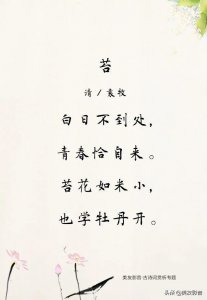 苔
清 / 袁枚
白日不到处，
青春恰自来。
苔花如米小，
也学牡丹开。
美友影音·古诗词赏析专题
头条@侠政影音